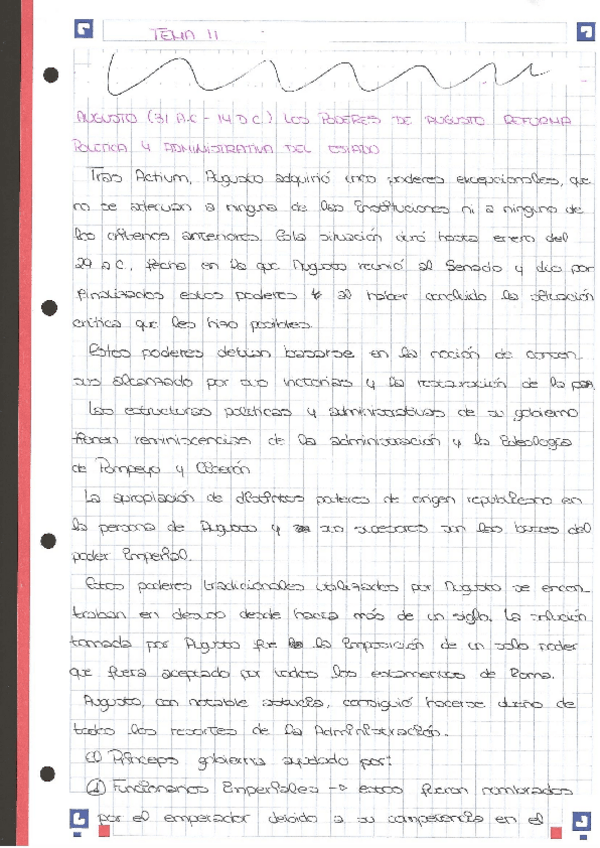 TEMA 11
AUGUSTO (31 A.C - 14 D.C). LOS PODERES DE AUGUSTO REFORMA
POLÍTICA Y ADMINISTRATIVA DEL ESTADO
Tras Actium, Augusto adquirió unos poderes excepcionales, que
no se adecuan a ninguna de las Instituciones ni a ninguno de
los criterios anteriores. Esta situación duró hasta enero del
29 a.C, fecha en la que Augusto reunió al Senado y dio por
finalizados estos poderes al haber concluido la situación
crítica que les hizo posibles.
Estos poderes debían basarse en la noción de consen-
sus alcanzado por sus victorias y la restauración de la paz.
Las estructuras políticas y administrativas de su gobierno
tienen reminiscencias de la administración y la Ideología
de Pompeyo y Cicerón
La apropiación de distintos poderes de origen republicano en
la persona de Augusto y sus sucesores son las bases del
poder Imperial.
Estos poderes tradicionales utilizados por Augusto se encon-
traban en desuso desde hacía más de un siglo. La solución
tomada por Augusto fue la Imposición de un solo poder
que fuera aceptado por todos los estamentos de Roma.
Augusto, con notable astucia, consiguió hacerse dueño de
todos los resortes de la Administración.
Princeps gobierna ayudado por:
① Funcionarios Imperiales → estos fueron nombrados
por el emperador debido a su competencia en el